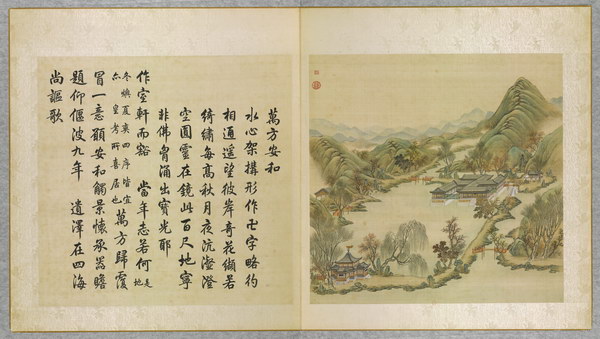 萬方安和
水心架構形作卍字略彴
相通遙望彼岸奇花纈若
綺繡每高秋月夜沆瀣澄
空圓靈在鏡此百尺地寧
非佛胷涌出寶光耶
作室軒而豁 當年志若何 是地
冬燠夏爽四序皆宜亦 皇考所喜居也 萬方歸覆
冒一意願安和觸景懷承器瞻
題仰偃波九年 遺澤在四海
尚謳歌